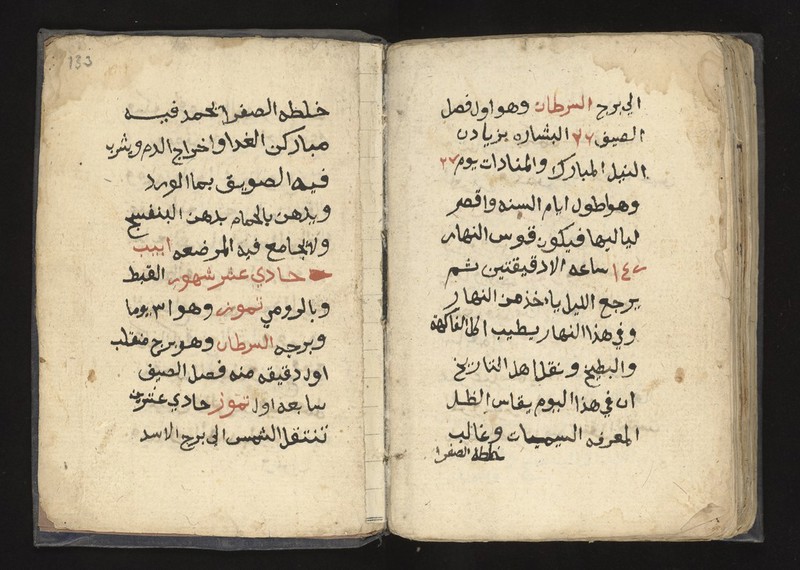 الي برج السرطان وهو اول فصل
الصيف ٢٦ البشاره بزيادت
النيل المبارك والمنادات يوم ٢٧
وهو اطول ايام السنه واقصر
لياليها فيكون قوس النهار
ساعه الا دقيقتين ثم
يرجع الليل ياخذ من النهار
وفي هذا النهار يطيب اكل الفاكهة
والبطيخ ونقل اهل التاريخ
ان في هذا اليوم يقاس الظل
المعرفه السميات وغالب
خلطه الصفرا
133
خلطه الصفرا تحمد فيه
مباركن الغدا واخراج الدم ويشرب
فيه الصويق بما الورد
ويدهن بالحمام بدهن البنفسج
ولا تجامع فيه المرضعه ابيب
حادي عشر شهور القبط
وبالرومي تموز وهو ٣١ يوما
وبرجه السرطان وهو برج منقلب
اول دقيقه منه فصل الصيف
سابعه اول تموز حادي عشرين
تنتقل الشمس الي برج الاسد